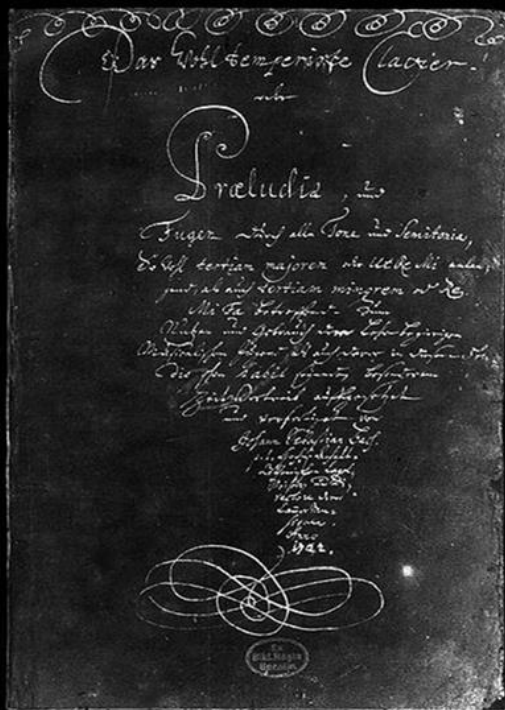 Das Wohl temperirte Clavier.
oder
Præludia, und
Fugen durch alle Tone und Semitonia,
So wohl tertiam majorem oder Ut Re Mi anlan-
gend, als auch tertiam minorem oder Re
Mi Fa betreffend. Zum
Nutzen und Gebrauch der Lehrbegierigen
Musicalischen Jugend, als auch derer in diesem stu-
dio schon habil seyenden besonderem
Zeitvertreib auffgesetzet
und verfertiget von
Johann Sebastian Bach.
p. t. Hochfürstl.
Capel-
Meistern
rectore derer
Camer Mu-
siquen.
Anno
1722.